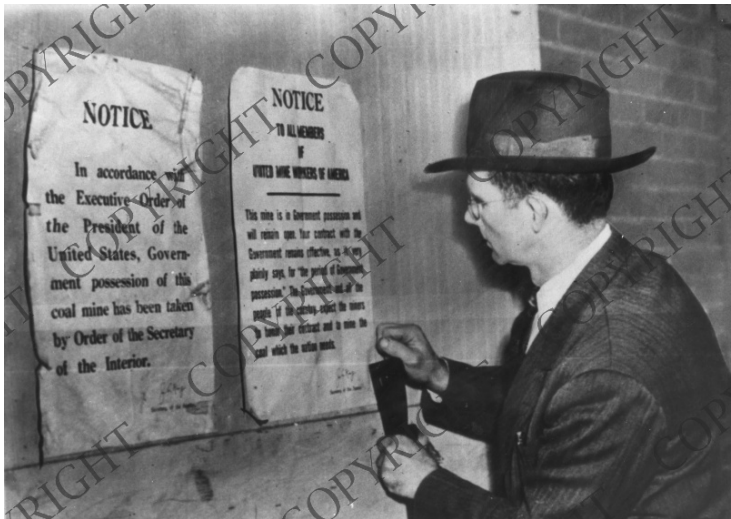 NOTICE
In accordance with
the Executive Order of
the President of the
United States, Govern-
ment possession of this
coal mine has been taken
by Order of the Secretary
of the Interior.
NOTICE
TO ALL MEMBERS
OF
UNITED MINE WORKERS OF AMERICA
This mine is in Government possession and
will remain open. Your contract with the
Government remains effective, as it very
plainly says, for "the period of Government
possession." The Government and all the
people of the country, expect the miners
to honor their contract and to mine the
coal which the nation needs.
COPYRIGHT
COPYRIGHT
COPYRIGHT
COPYRIGHT
COPYRIGHT
COPYRIGHT
COPYRIGHT
COPYRIGHT
COPYRIGHT